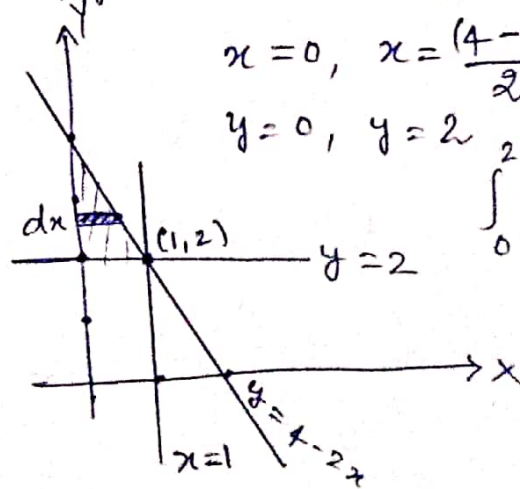 Y
x = 0, x = (4-
2
y = 0, y = 2
∫
2
0
dx
(1,2)
y = 2
X
y = 4 - 2x
x = 1